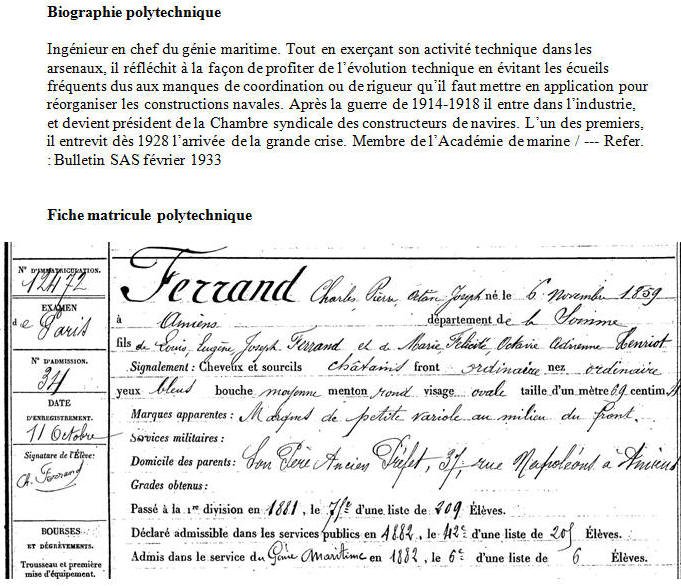 Biographie polytechnique
Ingénieur en chef du génie maritime. Tout en exerçant son activité technique dans les
arsenaux, il réfléchit à la façon de profiter de l'évolution technique en évitant les écueils
fréquents dus aux manques de coordination ou de rigueur qu'il faut mettre en application pour
réorganiser les constructions navales. Après la guerre de 1914-1918 il entre dans l'industrie,
et devient président de la Chambre syndicale des constructeurs de navires. L'un des premiers,
il entrevit dès 1928 l'arrivée de la grande crise. Membre de l'Académie de marine / --- Refer.
: Bulletin SAS février 1933
Fiche matricule polytechnique
N° D'IMMATRICULATION.
12472
EXAMEN
de Paris
N° D'ADMISSION.
34
DATE
D'ENREGISTREMENT.
11 Octobre
Signature de l'Élève:
Ch. Ferrand
BOURSES
ET DÉGRÈVEMENTS.
Trousseau et première
mise d'équipement.
Ferrand Charles, Pierre, Joseph né le 6 Novembre 1859
à Amiens département de la Somme
fils de Louis, Eugène, Joseph Ferrand et de Marie, Félicité, Octavie Adrienne Henriot
Signalement : Cheveux et sourcils châtains front ordinaire nez ordinaire
yeux bleus bouche moyenne menton rond visage ovale taille d'un mètre 69 centim.
Marques apparentes : Marques de petite variole au milieu du front.
Services militaires :
Domicile des parents : Son Père Ancien Préfet, 37, rue Napoléon à Amiens
Grades obtenus :
Passé à la 1re division en 1881, le d'une liste de 209 Élèves.
Déclaré admissible dans les services publics en 1882, le 42e d'une liste de 205 Élèves.
Admis dans le service du Génie Maritime en 1882, le 6e d'une liste de 6 Élèves.